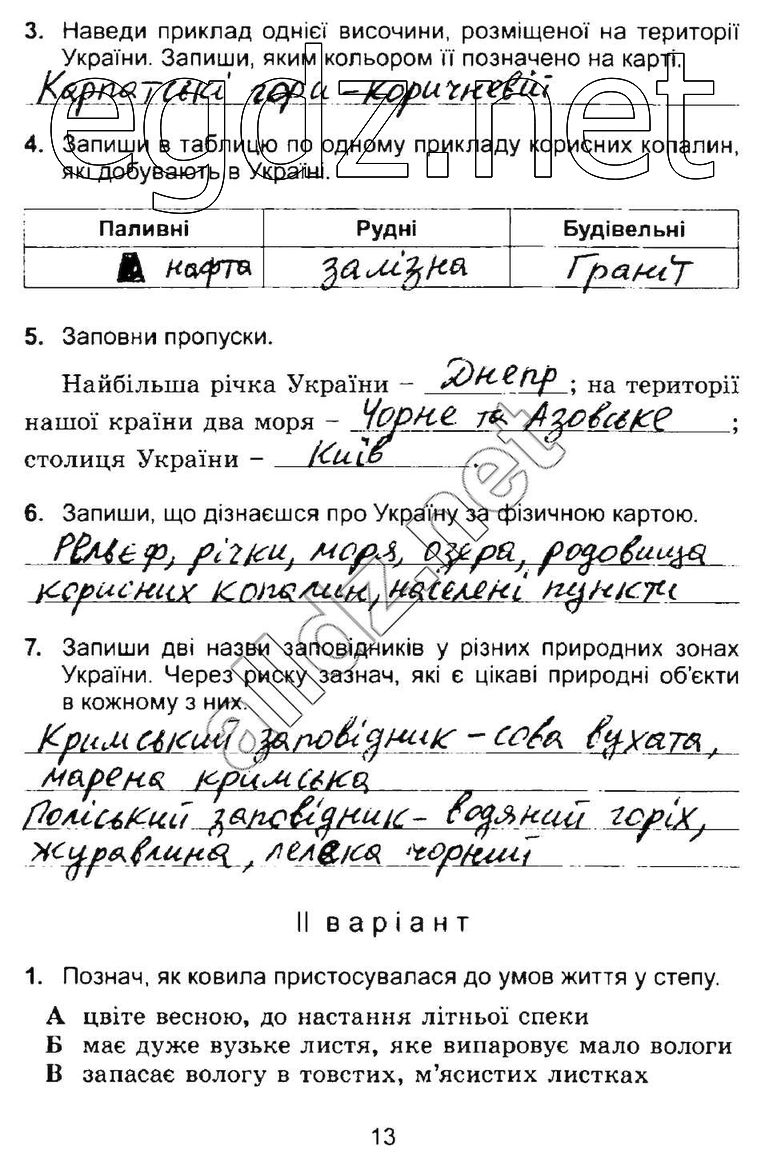 3. Наведи приклад однієї височини, розміщеної на території
України. Запиши, яким кольором її позначено на карті.
Карпатські гори – коричневій
egdz.net
4. Запиши в таблицю по одному прикладу корисних копалин,
які добувають в Україні.
Паливні Рудні Будівельні
нафта залізна Граніт
5. Заповни пропуски.
Найбільша річка України – Днепр ; на території
нашої країни два моря – Чорне та Азовське ;
столиця України – Київ .
6. Запиши, що дізнаєшся про Україну за фізичною картою.
Рельєф, річки, моря, озера, родовища
корисних копалин, населені пункти
alldz.net
7. Запиши дві назви заповідників у різних природних зонах
України. Через риску зазнач, які є цікаві природні об'єкти
в кожному з них.
Кримський заповідник – сова вухата,
марена кримська
Поліський заповідник – водяний горіх,
журавлина, лелека чорний
ІІ варіант
1. Познач, як ковила пристосувалася до умов життя у степу.
А цвіте весною, до настання літньої спеки
Б має дуже вузьке листя, яке випаровує мало вологи
В запасає вологу в товстих, м'ясистих листках
13